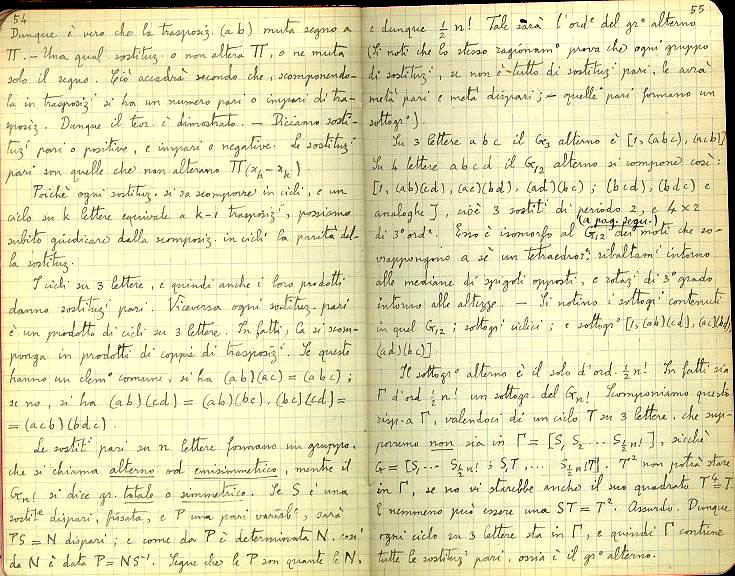 54
Dunque è vero che la trasposiz. (ab) muta segno a
Π. — Una qual sostituz. o non altera Π, o ne muta
solo il segno. Ciò accadrà secondo che, scomponendo-
la in trasposizⁱ si ha un numero pari o impari di tra-
sposizⁱ. Dunque il teor. è dimostrato. — Diciamo sosti-
tuzⁱ pari o positive, e impari o negative. Le sostituzⁱ
pari son quelle che non alterano Π(xₕ−xₖ).
Poichè ogni sostituz. si sa scomporre in cicli, e un
ciclo su k lettere equivale a k−1 trasposizⁱ, possiamo
subito giudicare dalla scomposiz. in cicli la parità del-
la sostituz.
I cicli su 3 lettere, e quindi anche i loro prodotti
danno sostituzⁱ pari. Viceversa ogni sostituz. pari
è un prodotto di cicli su 3 lettere. In fatti, la si scom-
ponga in prodotti di coppie di trasposizⁱ. Se queste
hanno un elemᵗᵒ comune, si ha (ab)(ac) = (abc);
se no, si ha (ab)(cd) = (ab)(bc).(bc)(cd) =
= (acb)(bdc).
Le sostitⁱ pari su n lettere formano un gruppo,
che si chiama alterno od emisimmetrico, mentre il
Gn! si dice gr. totale o simmetrico. Se S è una
sostitᵉ dispari, fissata, e P una pari variabᵉ, sarà
PS = N dispari; e come da P è determinata N, così
da N è data P = NS⁻¹. Segue che le P son quante le N,
55
e dunque ½ n! Tale sarà l'ordᵉ del grᵒ alterno
(Si noti che lo stesso ragionamᵒ prova che ogni gruppo
di sostituzⁱ, se non è tutto di sostituzⁱ pari, le avrà
metà pari e metà dispari; — quelle pari formano un
sottogrᵒ).
Su 3 lettere abc il G₃ alterno è [1, (abc), (acb)]
Su 4 lettere abcd il G₁₂ alterno si compone così:
[1, (ab)(cd), (ac)(bd), (ad)(bc); (bcd), (bdc) e
analoghe], cioè 3 sostitⁱ di periodo 2, e 4×2
di 3° ordᵉ. Esso è isomorfo al G₁₂ (a pag. segu.) dei moti che so-
vrappongono a sè un tetraedro: ribaltamⁱ intorno
alle mediane di spigoli opposti, e rotazⁱ di 3° grado
intorno alle altezze. — Si notino i sottogrⁱ contenuti
in quel G₁₂; sottogrⁱ ciclici; e sottogrᵒ [1, (ab)(cd), (ac)(bd),
(ad)(bc)]
Il sottogrᵒ alterno è il solo d'ord. ½ n! In fatti sia
Γ d'ord ½ n! un sottogr. del Gn! Scomponiamo questo
risp. a Γ, valendoci di un ciclo T su 3 lettere, che sup-
porremo non sia in Γ = [S₁ S₂ ... S½n!], sicchè
G = [S₁ ... S½n! ; S₁T, ... S½n!T]. T² non potrà stare
in Γ, se no vi starebbe anche il suo quadrato T⁴=T
E nemmeno può essere una ST = T². Assurdo. Dunque
ogni ciclo su 3 lettere sta in Γ, e quindi Γ contiene
tutte le sostituzⁱ pari, ossia è il grᵒ alterno.